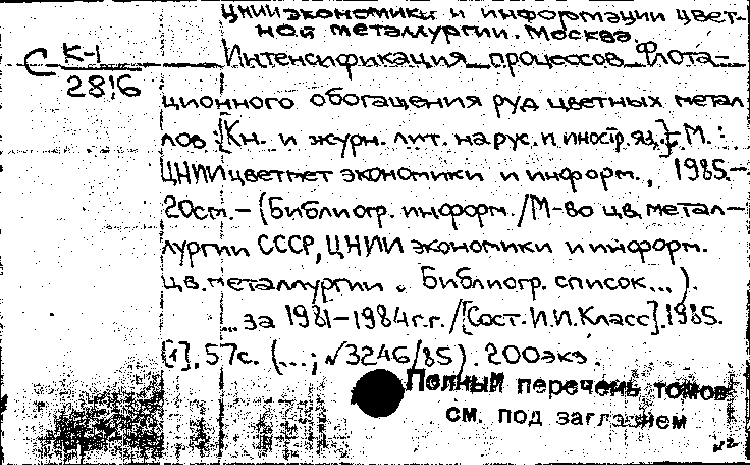 ЦНИИ экономики и информации цвет-
ной металлургии. Москва.
С К-1
2816
Интенсификация процессов флота-
ционного обогащения руд цветных метал
лов: [Кн. и журн. лит. на рус. и иностр. яз.]-М.:
ЦНИИцветмет экономики и информ., 1985.-
20см.-(Библиогр. информ./М-во цв. метал-
лургии СССР, ЦНИИ экономики и информ.
цв. металлургии. Библиогр. список...).
...за 1981-1984г.г./[Сост. И.И. Класс]. 1985.
[1], 57с. (...; √3246/85). 200экз.
Полный перечень томов
см. под заглавием